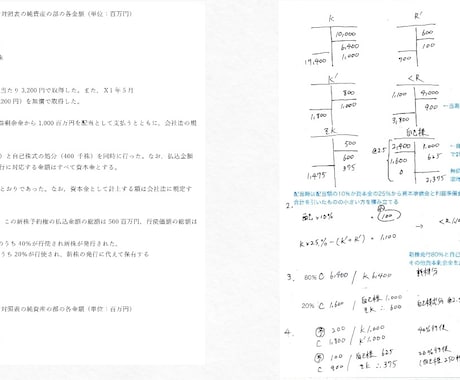 対照表の純資産の部の各金額（単位：百万円）
当たり 3,200 円で取得した。また、X1年5月
200 円）を無償で取得した。
剰余金から 1,000 百万円を配当として支払うとともに、会社法の規
）と自己株式の処分（400 千株）を同時に行った。なお、払込金額
行に対応する金額はすべて資本金とする。
とおりであった。なお、資本金として計上する額は会社法に規定す
この新株予約権の払込金額の総額は 500 百万円、行使価額の総額は
のうち 40％が行使され新株が発行された。
うち 20％が行使され、新株の発行に代えて保有する
対照表の純資産の部の各金額（単位：百万円）
K
10,000
6,400
1,000
17,400
R'
600
100
700
K'
800
1,000
1,800
<R
1,100
4,000
900
3,800
ZK
500
600
375
1,475
自己株
@2.5
2,400
1,000
1,600
625
0
2,375
配当時は配当額の10%か資本金の25%から資本準備金と利益準備金
合計を引いたものの小さい方を積み立てる
2.
配当×10%
100
K×25% - (K'+R') = 1,100
新株発行80%と自己
3. 80% C 6,400 / K 6,400
新株分
20% C 1,600 / 自己株 1,000
ZK ∴ 600
4.
200 / K 1,000
C 1,800 / K' 1,000
40%行使
100 / 自己株 625
C 900 / ZK ∴ 375
20%行使